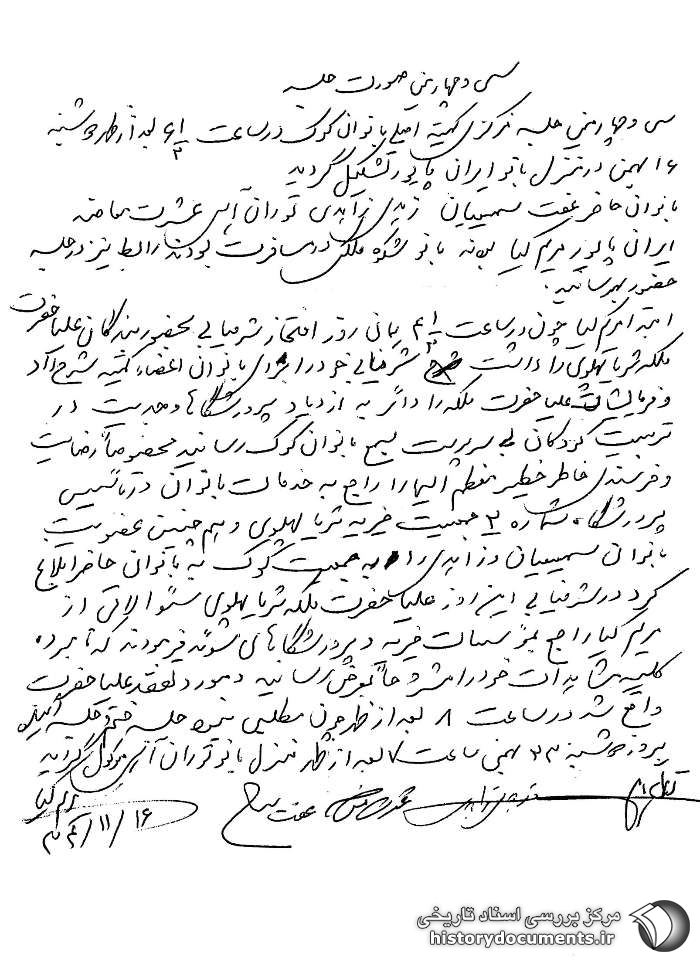 سی و چهارمین صورت جلسه
سی و چهارمین جلسه مرکزی کمیته اصلی بانوان کوک در ساعت ۶ بعد از ظهر شنبه
۱۶ بهمن در منزل بانو ایران پالیور تشکیل گردید
بانوان حاضر عفت سمیعیان زیدی زاهدی توران آهی عشرت
ایران پالیور مریم کیا بودند بانو شکوه ملکی در مسافرت بودند رابط نیز در جلسه
حضور بهم رسانید.
ابتدا مریم کیا چون در ساعت ۴ همان روز افتخار شرفیابی بحضور بندگان علیاحضرت
ملکه ثریا پهلوی را داشت شرفیابی خود را برای بانوان اعضاء کمیته شرح داد
و فرمایشات علیاحضرت ملکه را دائر به ازدیاد پرورشگاهها و جدیت در
تربیت کودکان بی سرپرست بسمع بانوان کوک رسانید مخصوصاً رضایت
و خرسندی خاطر خطیر معظم الیها را راجع به خدمات بانوان در تأسیس
پرورشگاه شماره ۲ جمعیت خیریه ثریا پهلوی و هم چنین عضویت
بانوان سمیعیان و زاهدی را به جمعیت کوک به بانوان حاضر ابلاغ
کرد در شرفیابی این روز علیاحضرت ملکه ثریا پهلوی سئوالاتی از
مریم کیا راجع بمؤسسات خیریه و پرورشگاههای سوئد فرمودند که نامبرده
کلیه مشاهدات خود را مشروحاً بعرض رسانید و مورد تفقد علیاحضرت
واقع شد در ساعت ۸ بعد از ظهر چون مطلبی نبود جلسه ختم و جلسه آینده
بروز شنبه ۲۳ بهمن ساعت ۷ بعد از ظهر منزل بانو توران آهی موکول گردید
مریم کیا
عفت
۱۶/۱۱/
مرکز بررسی اسناد تاریخی
historydocuments.ir